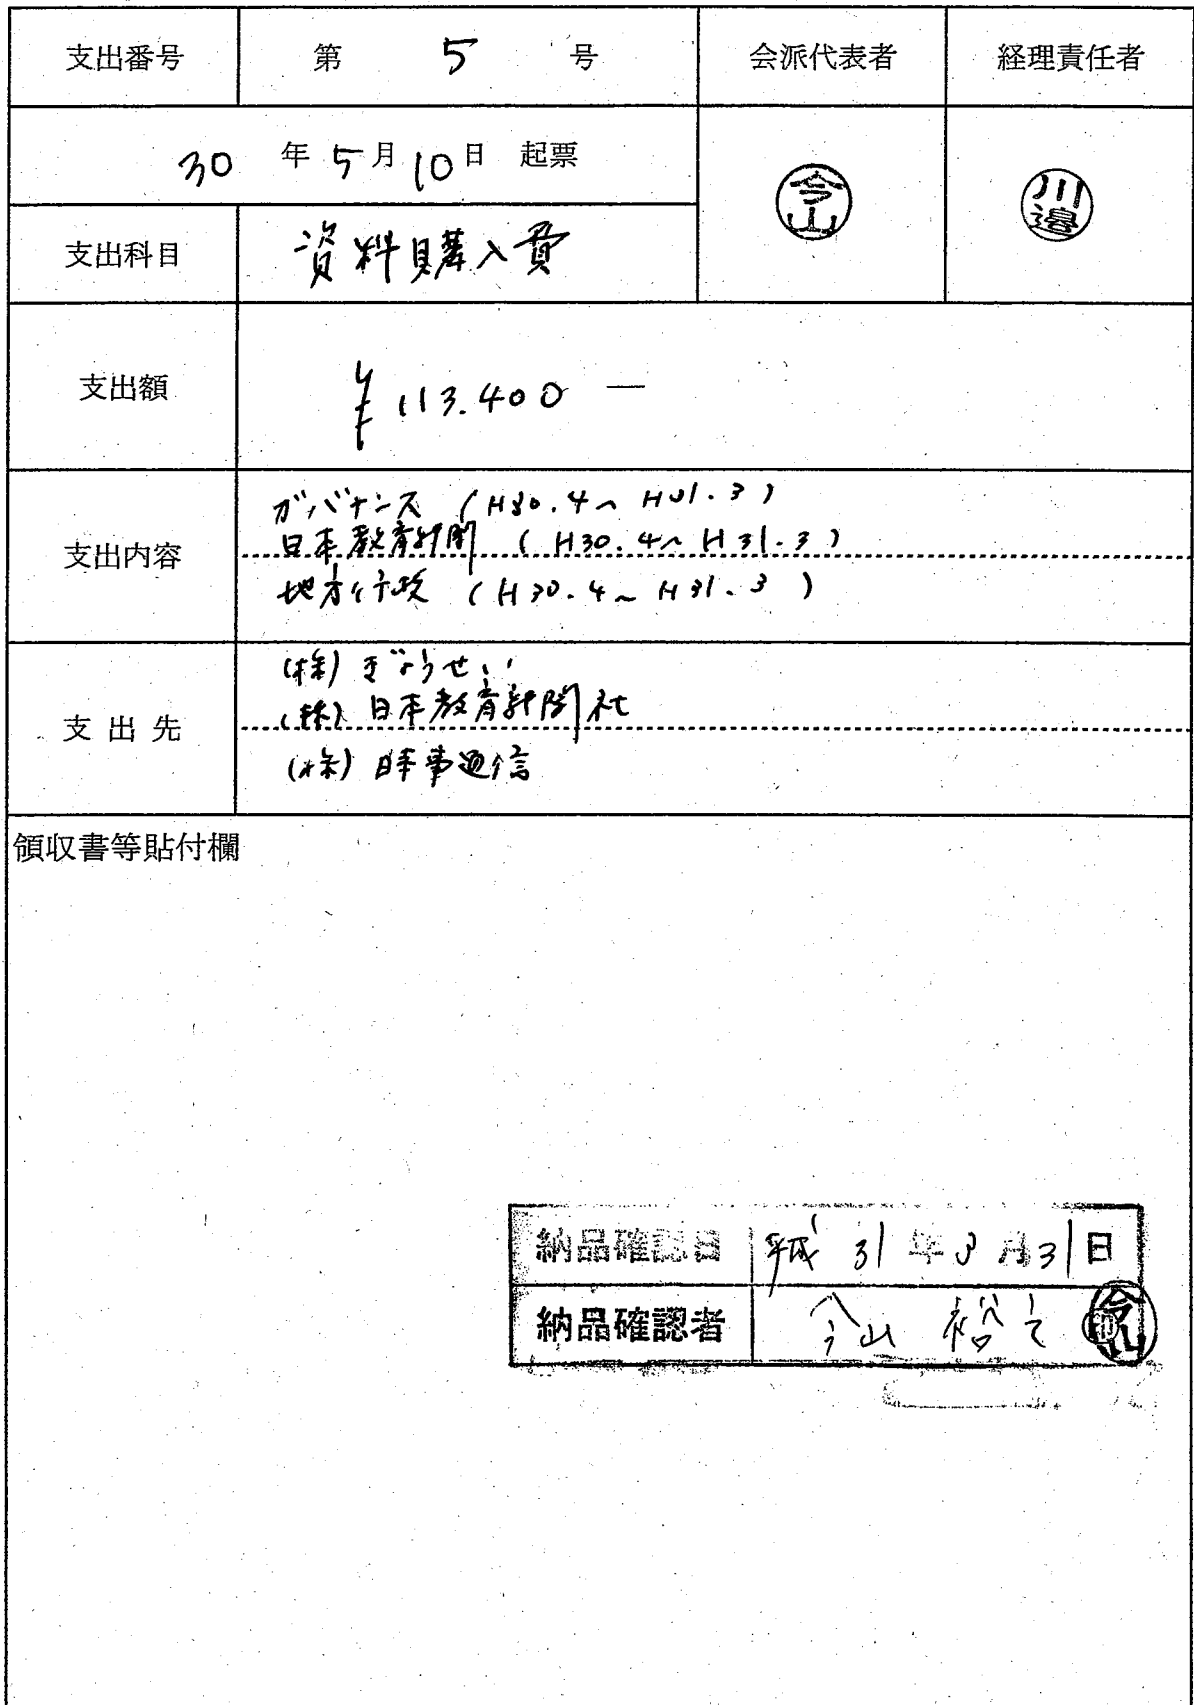 支出番号 第 5 号 会派代表者 経理責任者
30 年 5 月 10 日 起票
今山
川邉
支出科目 資料購入費
支出額 ¥113.400 —
支出内容
ガバナンス (H30.4〜H31.3)
日本教育新聞 (H30.4〜H31.3)
地方行政 (H30.4〜H31.3)
支出先
(株) ぎょうせい
(株) 日本教育新聞社
(株)
領収書等貼付欄
納品確認日 平成 31 年 3 月 31 日
納品確認者 今山 裕之 今山